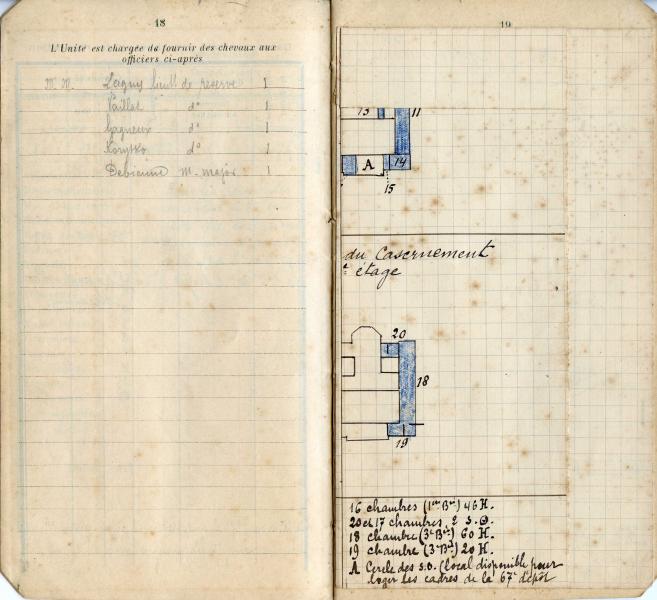 18
L'Unité est chargée de fournir des chevaux aux
officiers ci-après
M. M. Lagny lieutt de réserve 1
Vaillat d° 1
Gagneux d° 1
Korytko d° 1
Debienne m. major 1
19
13 11
A 14
15
du Casernement
étage
20
18
19
16 chambres (1er Bon) 46 H.
20 et 17 chambres, 2 S.O.
18 chambre (3e Bon) 60 H.
19 chambre (3e Bon) 20 H.
A Cercle des s.o. (local disponible pour
loger les cadres de la 67e dépôt